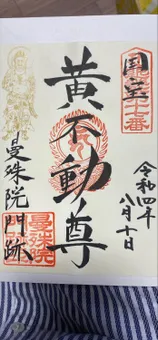 国宝
黄不動尊
令和四年
八月十日
曼殊院門跡
曼殊院